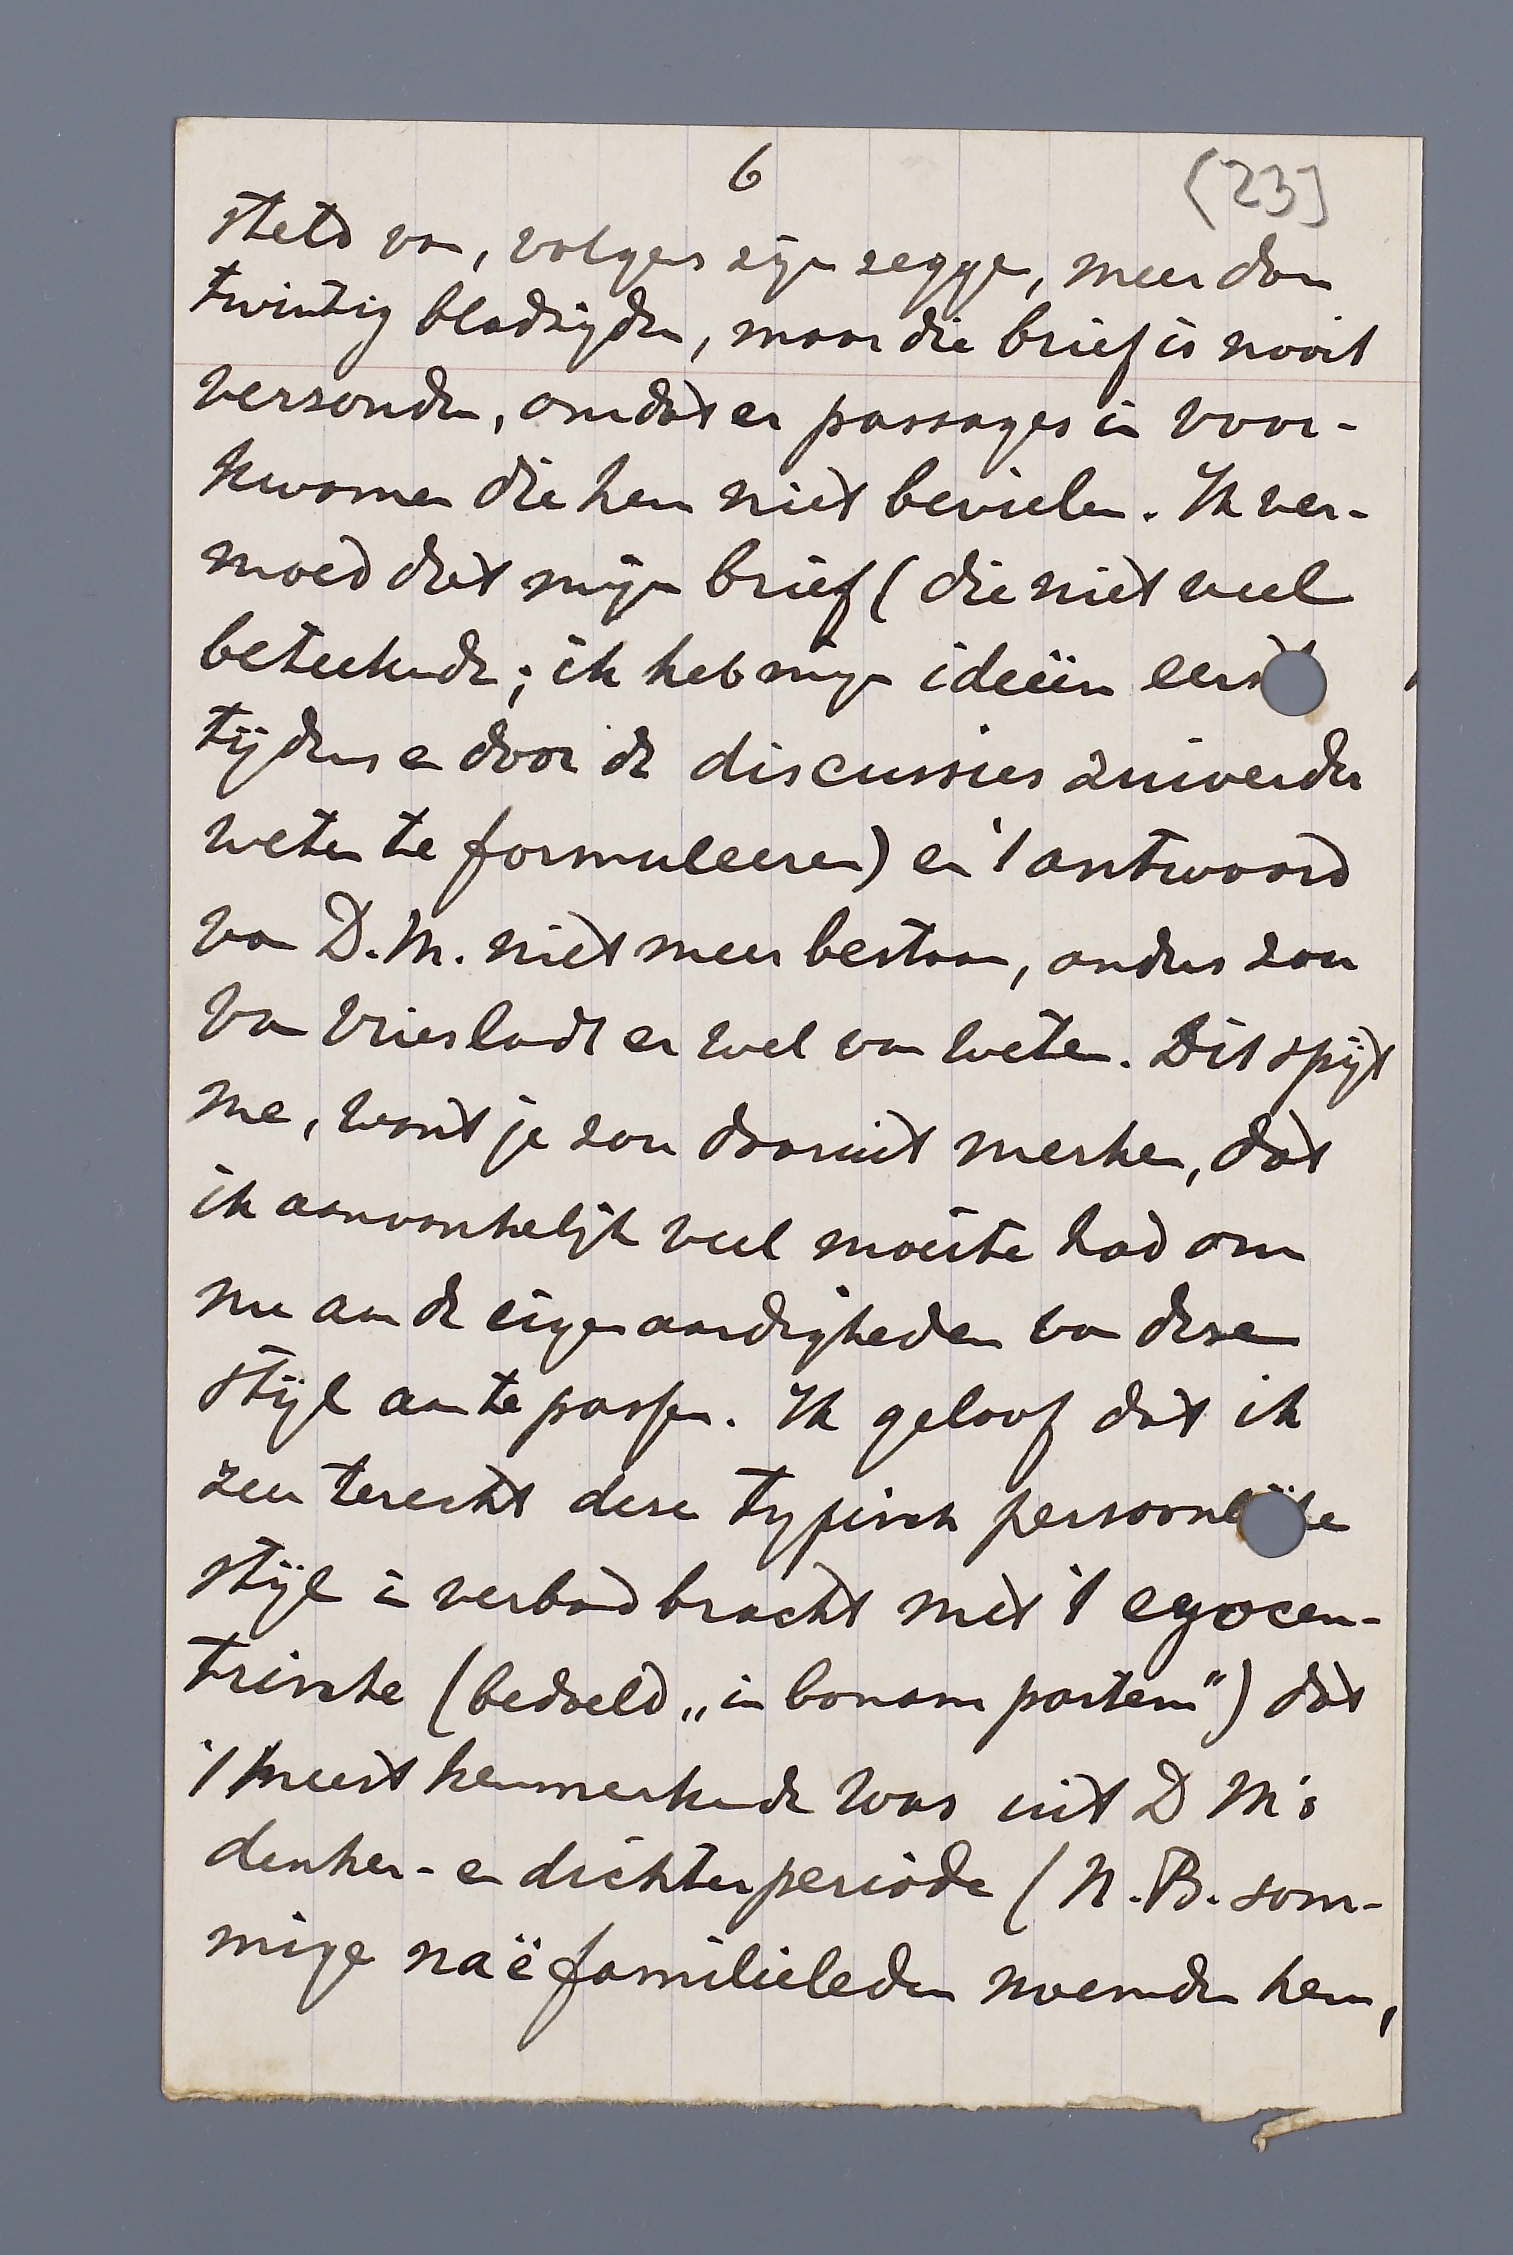 6
(23]
steld van, volgens zijn zeggen, meer dan
twintig bladzijden, maar die brief is nooit
verzonden, omdat er passages in voor-
kwamen die hem niet bevielen. Ik ver-
moed dat mijn brief (die niet veel
beteekende; ik heb mijn ideeën eerst
tijdens en door de discussies zuiverder
weten te formuleeren) en 't antwoord
van D.M. niet meer bestaan, anders zou
van Vriesland er wel van weten. Dit spijt
me, want je zou daaruit merken, dat
ik aanvankelijk veel moeite had om
me aan de eigenaardigheden van dezen
stijl aan te passen. Ik geloof dat ik
zeer terecht deze typisch persoonlijke
stijl in verband bracht met 't egocen-
trische (bedoeld „in bonam partem") dat
't meest kenmerkende was uit D M's
denker- en dichterperiode (N.B. som-
mige naë familieleden noemden hem,